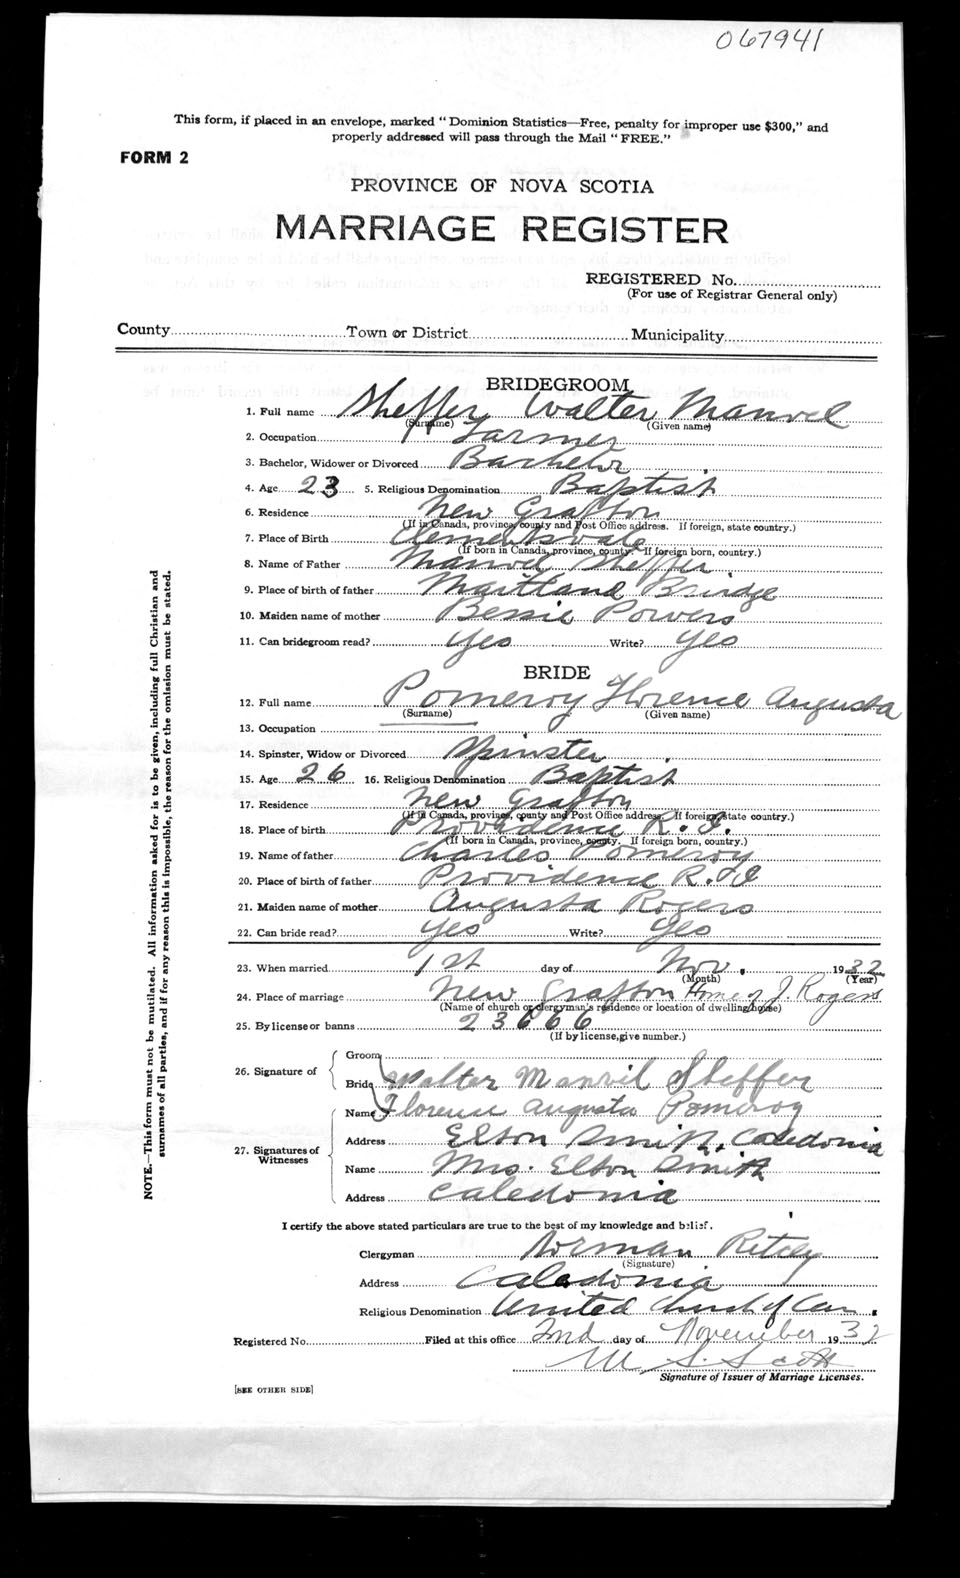 067941
This form, if placed in an envelope, marked "Dominion Statistics—Free, penalty for improper use $300," and
properly addressed will pass through the Mail "FREE."
FORM 2
PROVINCE OF NOVA SCOTIA
MARRIAGE REGISTER
REGISTERED No.
(For use of Registrar General only)
County Town or District Municipality
BRIDEGROOM
1. Full name Sheffer Walter Manvel
(Surname) (Given name)
2. Occupation Farmer
3. Bachelor, Widower or Divorced Bachelor
4. Age 23 5. Religious Denomination Baptist
6. Residence New Grafton
(If in Canada, province, county and Post Office address. If foreign, state country.)
7. Place of Birth Clementsvale
(If born in Canada, province, county. If foreign born, country.)
8. Name of Father Manvel Sheffer
9. Place of birth of father Maitland Bridge
10. Maiden name of mother Bessie Powers
11. Can bridegroom read? Yes Write? Yes
BRIDE
12. Full name Pomeroy Florence Augusta
(Surname) (Given name)
13. Occupation
14. Spinster, Widow or Divorced Spinster
15. Age 26 16. Religious Denomination Baptist
17. Residence New Grafton
(If in Canada, province, county and Post Office address. If foreign, state country.)
18. Place of birth Providence R.I.
(If born in Canada, province, county. If foreign born, country.)
19. Name of father Charles Pomeroy
20. Place of birth of father Providence R.I.
21. Maiden name of mother Augusta Rogers
22. Can bride read? Yes Write? Yes
23. When married 1st day of Nov. 1932
(Month) (Year)
24. Place of marriage New Grafton Home of J. Rogers
(Name of church or clergyman's residence or location of dwelling house)
25. By license or banns 23666
(If by license, give number.)
26. Signature of
Groom
Bride Walter Manvil Sheffer
Name Florence Augusta Pomeroy
27. Signatures of Witnesses
Address Elton Smith, Caledonia
Name Mrs. Elton Smith
Address Caledonia
I certify the above stated particulars are true to the best of my knowledge and belief.
Clergyman Norman
(Signature)
Address Caledonia
Religious Denomination United Church of Can.
Registered No. Filed at this office 2nd day of November 1932
M. S. Scott
Signature of Issuer of Marriage Licenses.
[SEE OTHER SIDE]
NOTE.—This form must not be mutilated. All information asked for is to be given, including full Christian and
surnames of all parties, and if for any reason this is impossible, the reason for the omission must be stated.